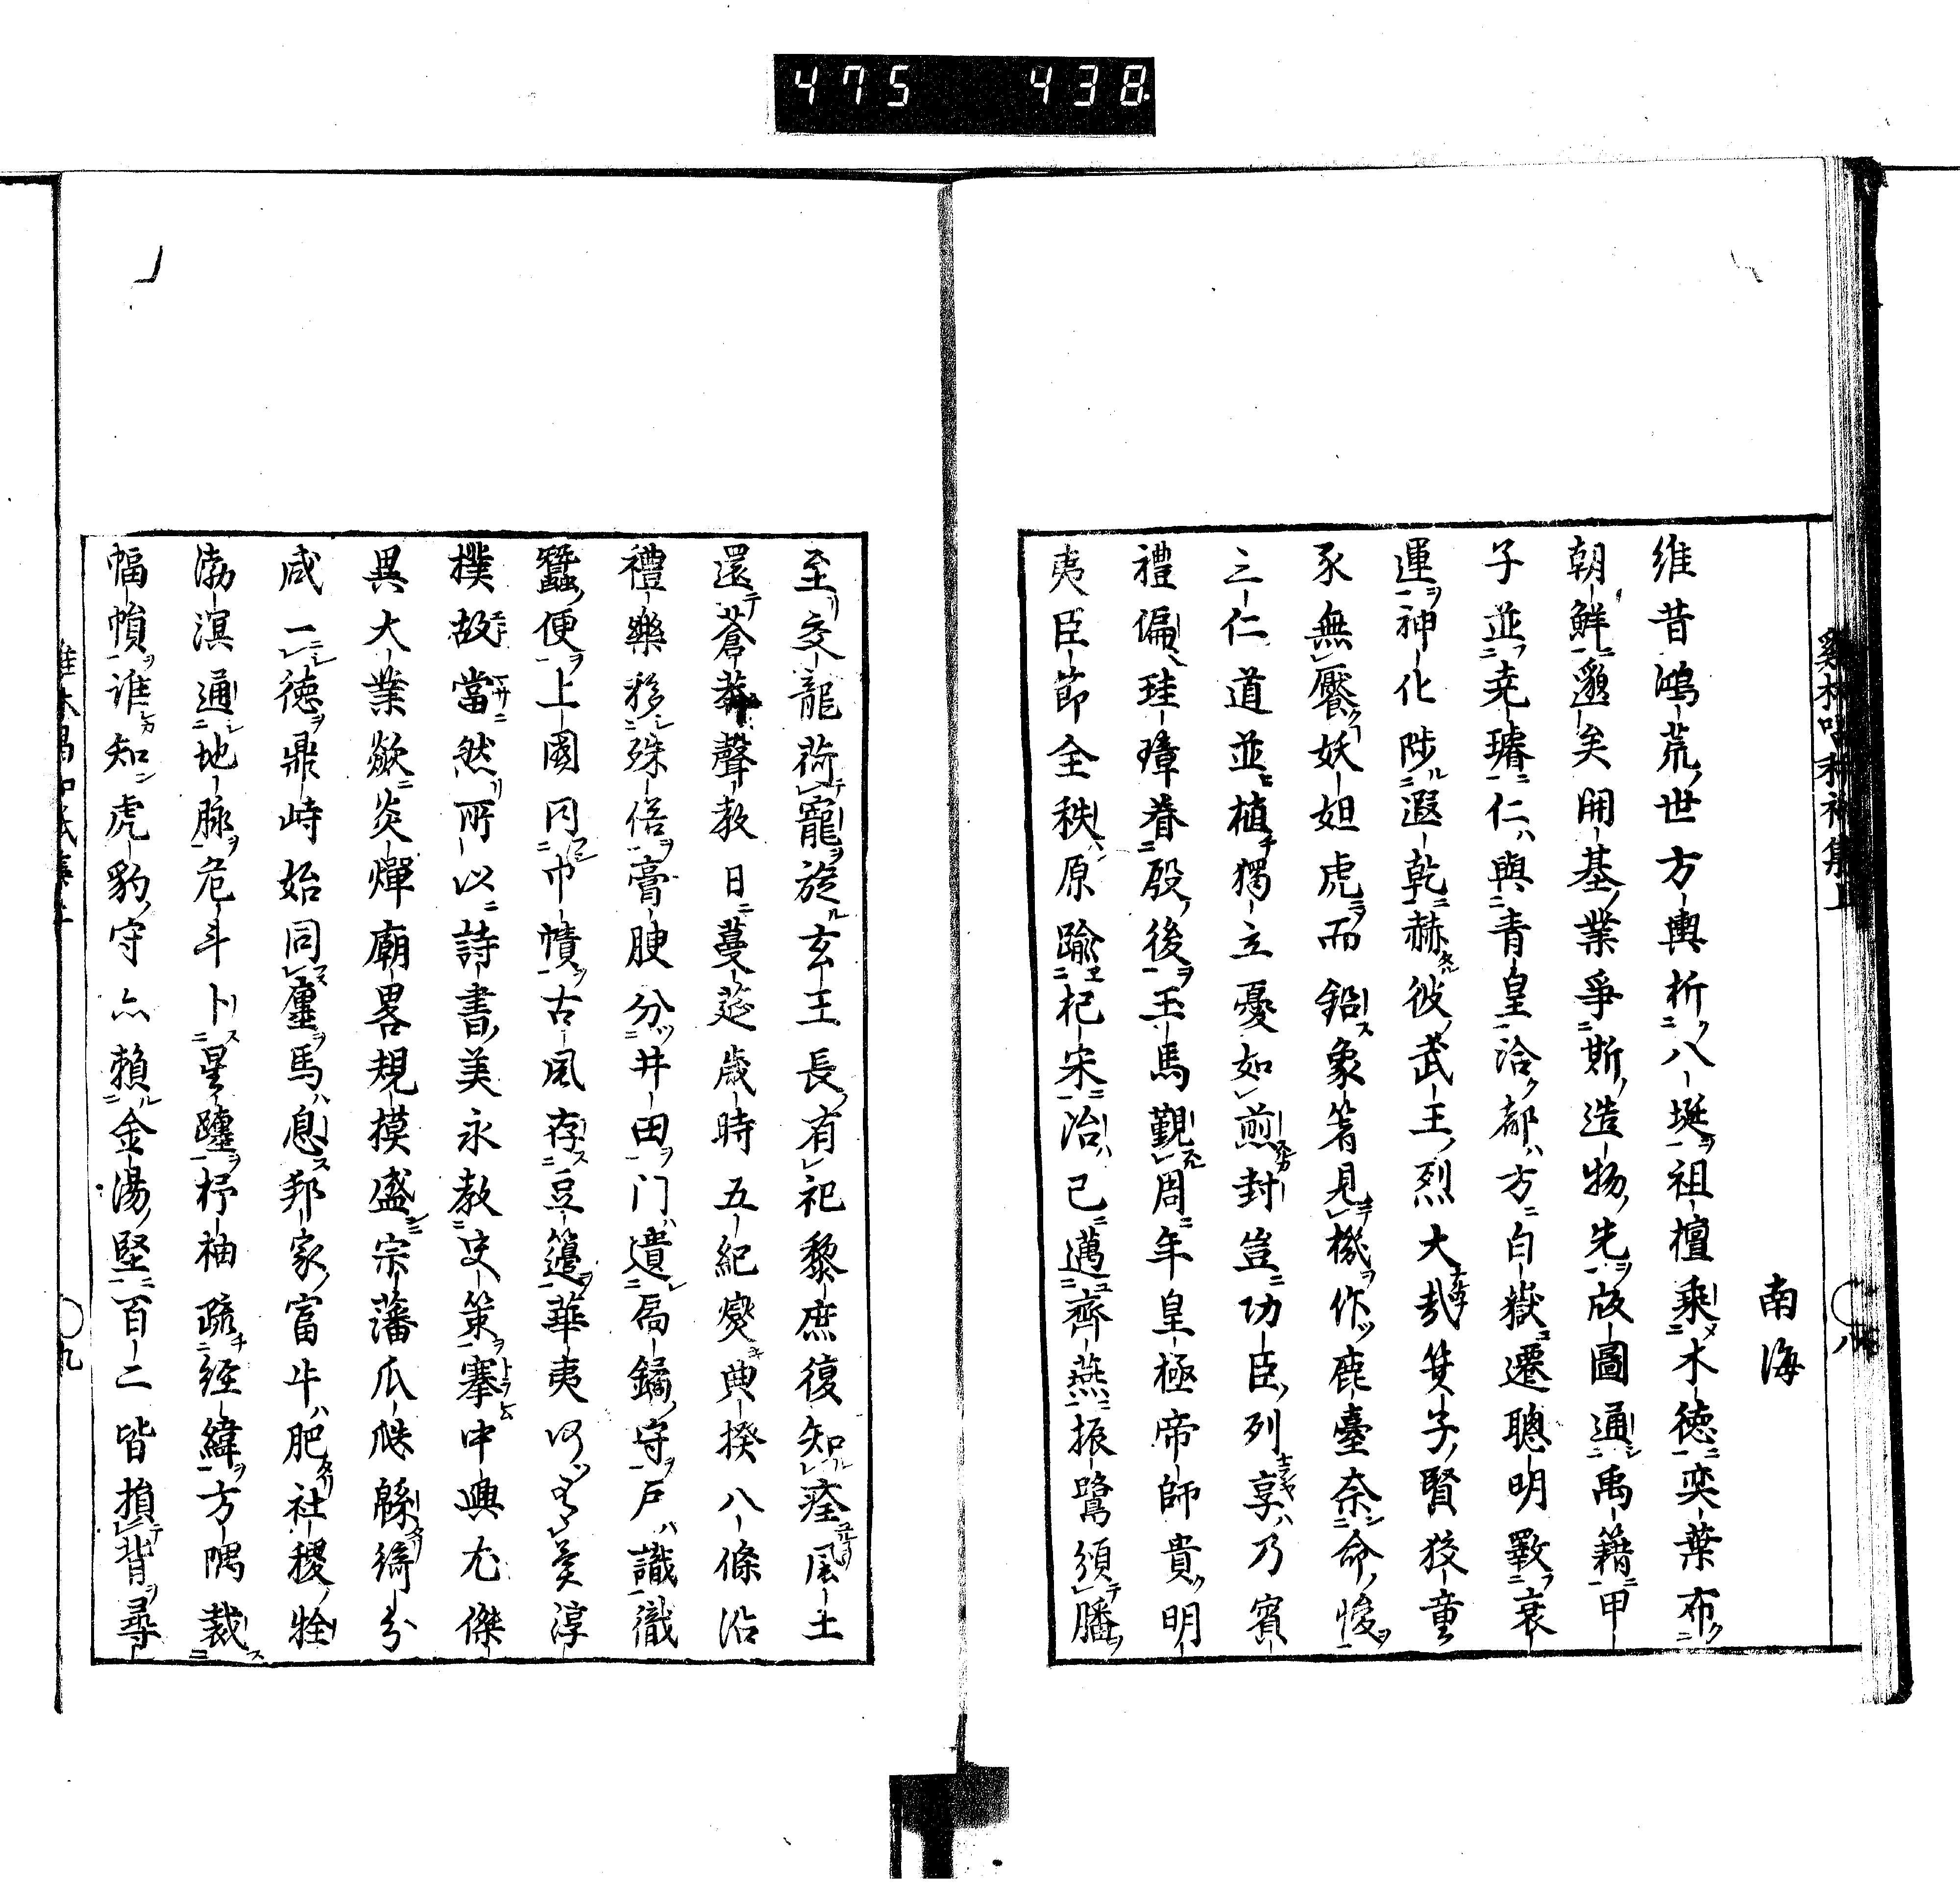 475 438
南海
維昔鴻荒世方輿折八埏祖檀乗木徳奕葉布
朝鮮邈矣開基業爭斯造物先版圖通禹籍甲
子並堯璿仁與青皇洽都方白嶽遷聰明斁衰
運神化陟遐乾赫彼武王烈大哉箕子賢狡童
豕無饜妖妲虎而鉛象箸見機作鹿臺奈命悛
三仁道並植獨立憂如煎封豈功臣列享乃賓
禮偏珪璋眷殷後玉馬覲周年皇極帝師貴明
夷臣節全秩原踰杞宋治已邁齊燕振鷺須膰
至交龍荷寵旋玄王長有祀黎庶復知痊風土
還蒼莽聲教日蔓莚歳時五紀爕典揆八條沿
禮樂移殊俗膏腴分井田门遺扃鐍守戸識織
蠶便上國同巾幘古風存豆籩華夷淳
樸故當然所以詩書美永教史策搴中興尤傑
異大業焱炎燀廟畧規模盛宗藩瓜瓞緜徧分
咸一徳鼎峙始同廛馬息邦家富牛肥社稷牷
渤溟通地脉危斗卜星躔杼柚疏經緯方隅裁
幅幀誰知虎豹守亦賴金湯堅百二皆指背尋